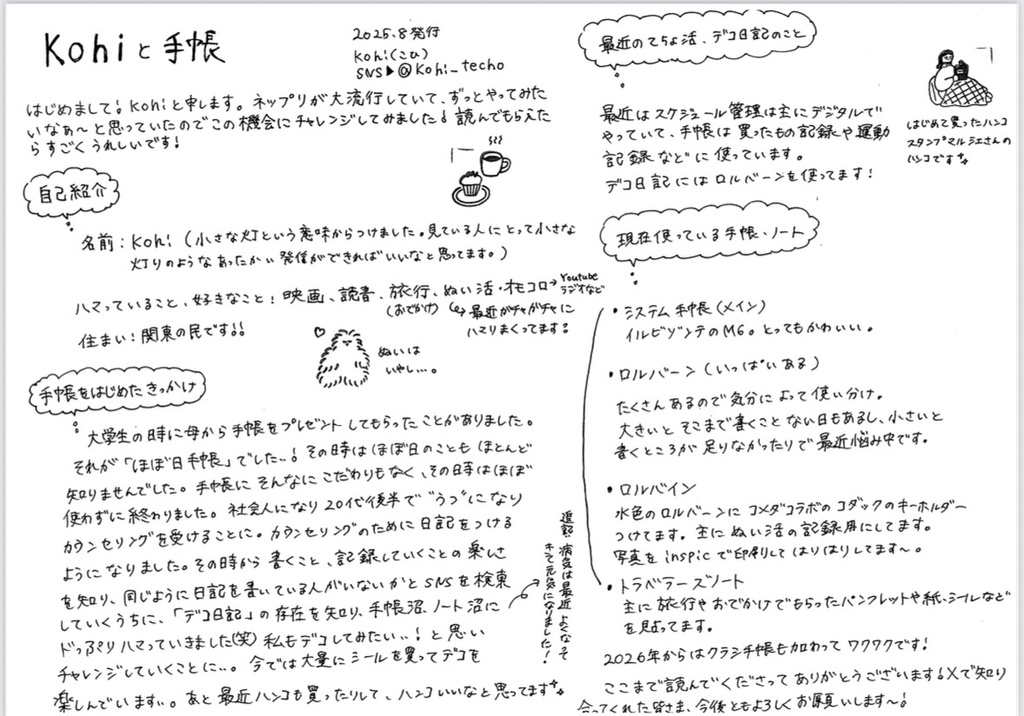 Kohiと手帳
2025.8発行
Kohi(こひ)
SNS▶@Kohi_techo
はじめまして!Kohiと申します。ネップリが大流行していて、ずっとやってみた
いなぁ〜と思っていたのでこの機会にチャレンジしてみました!読んでもらえた
らすごくうれしいです!
自己紹介
名前:Kohi(小さな灯という意味からつけました。見ている人にとって小さな
灯りのようなあったかい発信ができればいいなと思ってます。)
ハマっていること、好きなこと:映画、読書、旅行、ぬい活・オモコロ→Youtube
ラジオなど
(おでかけ)
(↪最近ガチャガチャに
ハマりまくってます!
住まい:関東の民です!!
ぬいは
いやし…。
手帳をはじめたきっかけ
大学生の時に母から手帳をプレゼントしてもらったことがありました。
それが「ほぼ日手帳」でした..!その時はほぼ日のこともほとんど
知りませんでした。手帳にそんなにこだわりもなく、その時はほぼ
使わずに終わりました。社会人になり20代後半で"うつ"になり
カウンセリングを受けることに。カウンセリングのために日記をつける
ようになりました。その時から書くこと、記録していくことの楽しさ
を知り、同じように日記を書いている人がいないかとSNSを検索
していくうちに、「デコ日記」の存在を知り、手帳沼、ノート沼に
ドップリハマっていきました(笑)私もデコしてみたい..!と思い
チャレンジしていくことに…。今では大量にシールを買ってデコを
楽しんでいます..。あと最近ハンコも買ったりして、ハンコいいなと思ってます
追記:病気は最近よくなって
きて元気になりました!
最近のてちょ活、デコ日記のこと
最近はスケジュール管理は主にデジタルで
やっていて、手帳は買ったもの記録や運動
記録などに使っています。
デコ日記にはロルバーンを使ってます!
はじめて買ったハンコ
スタンプマルシェさんの
ハンコです
現在使っている手帳、ノート
・システム手帳(メイン)
イルビゾンテのM6。とってもかわいい。
・ロルバーン(いっぱいある)
たくさんあるので気分によって使い分け。
大きいとそこまで書くことない日もあるし、小さいと
書くところが足りなかったりで最近悩み中です。
・ロルバイン
水色のロルバーンにコメダコラボのコダックのキーホルダー
つけてます。主にぬい活の記録用にしてます。
写真をinspicで印刷してはりはりしてます〜。
・トラベラーズノート
主に旅行やおでかけでもらったパンフレットや紙、シールなど
を貼ってます。
2026年からはクラシ手帳も加わってワクワクです!
ここまで読んでくださってありがとうございます!Xで知り
合ってくれた皆さま、今後ともよろしくお願いします〜!